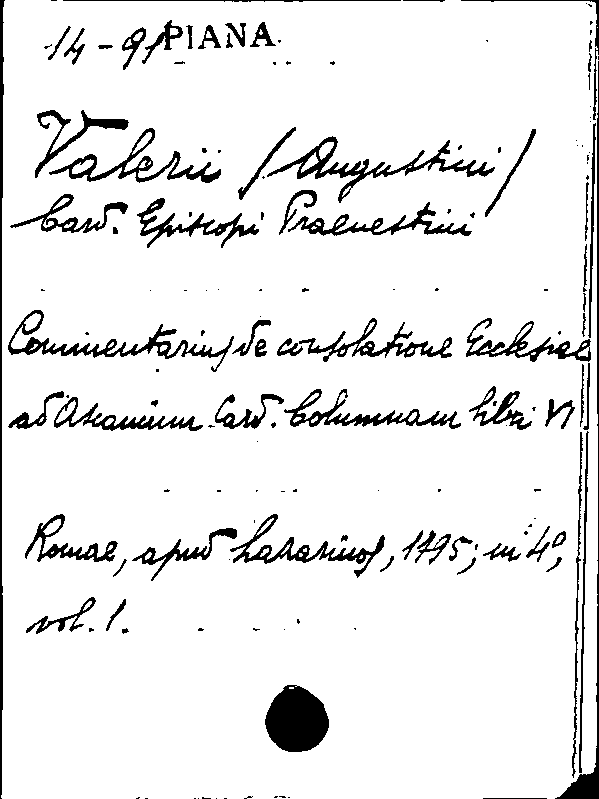 14-91 PIANA
Valerii (Augustini)
Card. Episcopi Praenestini
Commentarius de consolatione Ecclesiae
ad Ascanium Card. Columnam libri VI
Romae, apud Lazarinos, 1795; in 4º,
vol. 1.